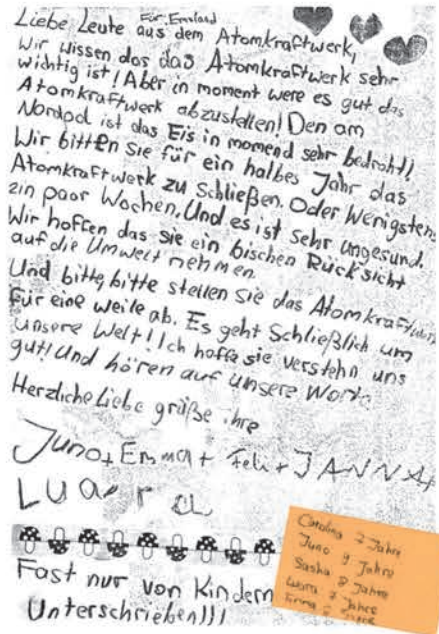 Für Emsland
Liebe Leute aus dem Atomkraftwerk,
Wir wissen das das Atomkraftwerk sehr
wichtig ist! Aber in moment were es gut das
Atomkraftwerk abzustellen! Den am
Nordpol ist das Eis in momend sehr bedroht!
Wir bitten Sie für ein halbes Jahr das
Atomkraftwerk zu schließen. Oder Wenigstens
ein paar Wochen. Und es ist sehr ungesund.
Wir hoffen das sie ein bischen Rücksicht
auf die Umwelt nehmen.
Und bitte, bitte stellen sie das Atomkraftwerk
für eine weile ab. Es geht Schließlich um
unsere Welt! Ich hoffe sie verstehn uns
gut! Und hören auf unsere Worte
Herzliche Liebe grüße ihre
Juno + Emma + + JANNA +
Fast nur von Kindern
Unterschrieben!!!
Carolina 7 Jahre
Juno 9 Jahre
Sasha 8 Jahre
7 Jahre
Emma Jahre